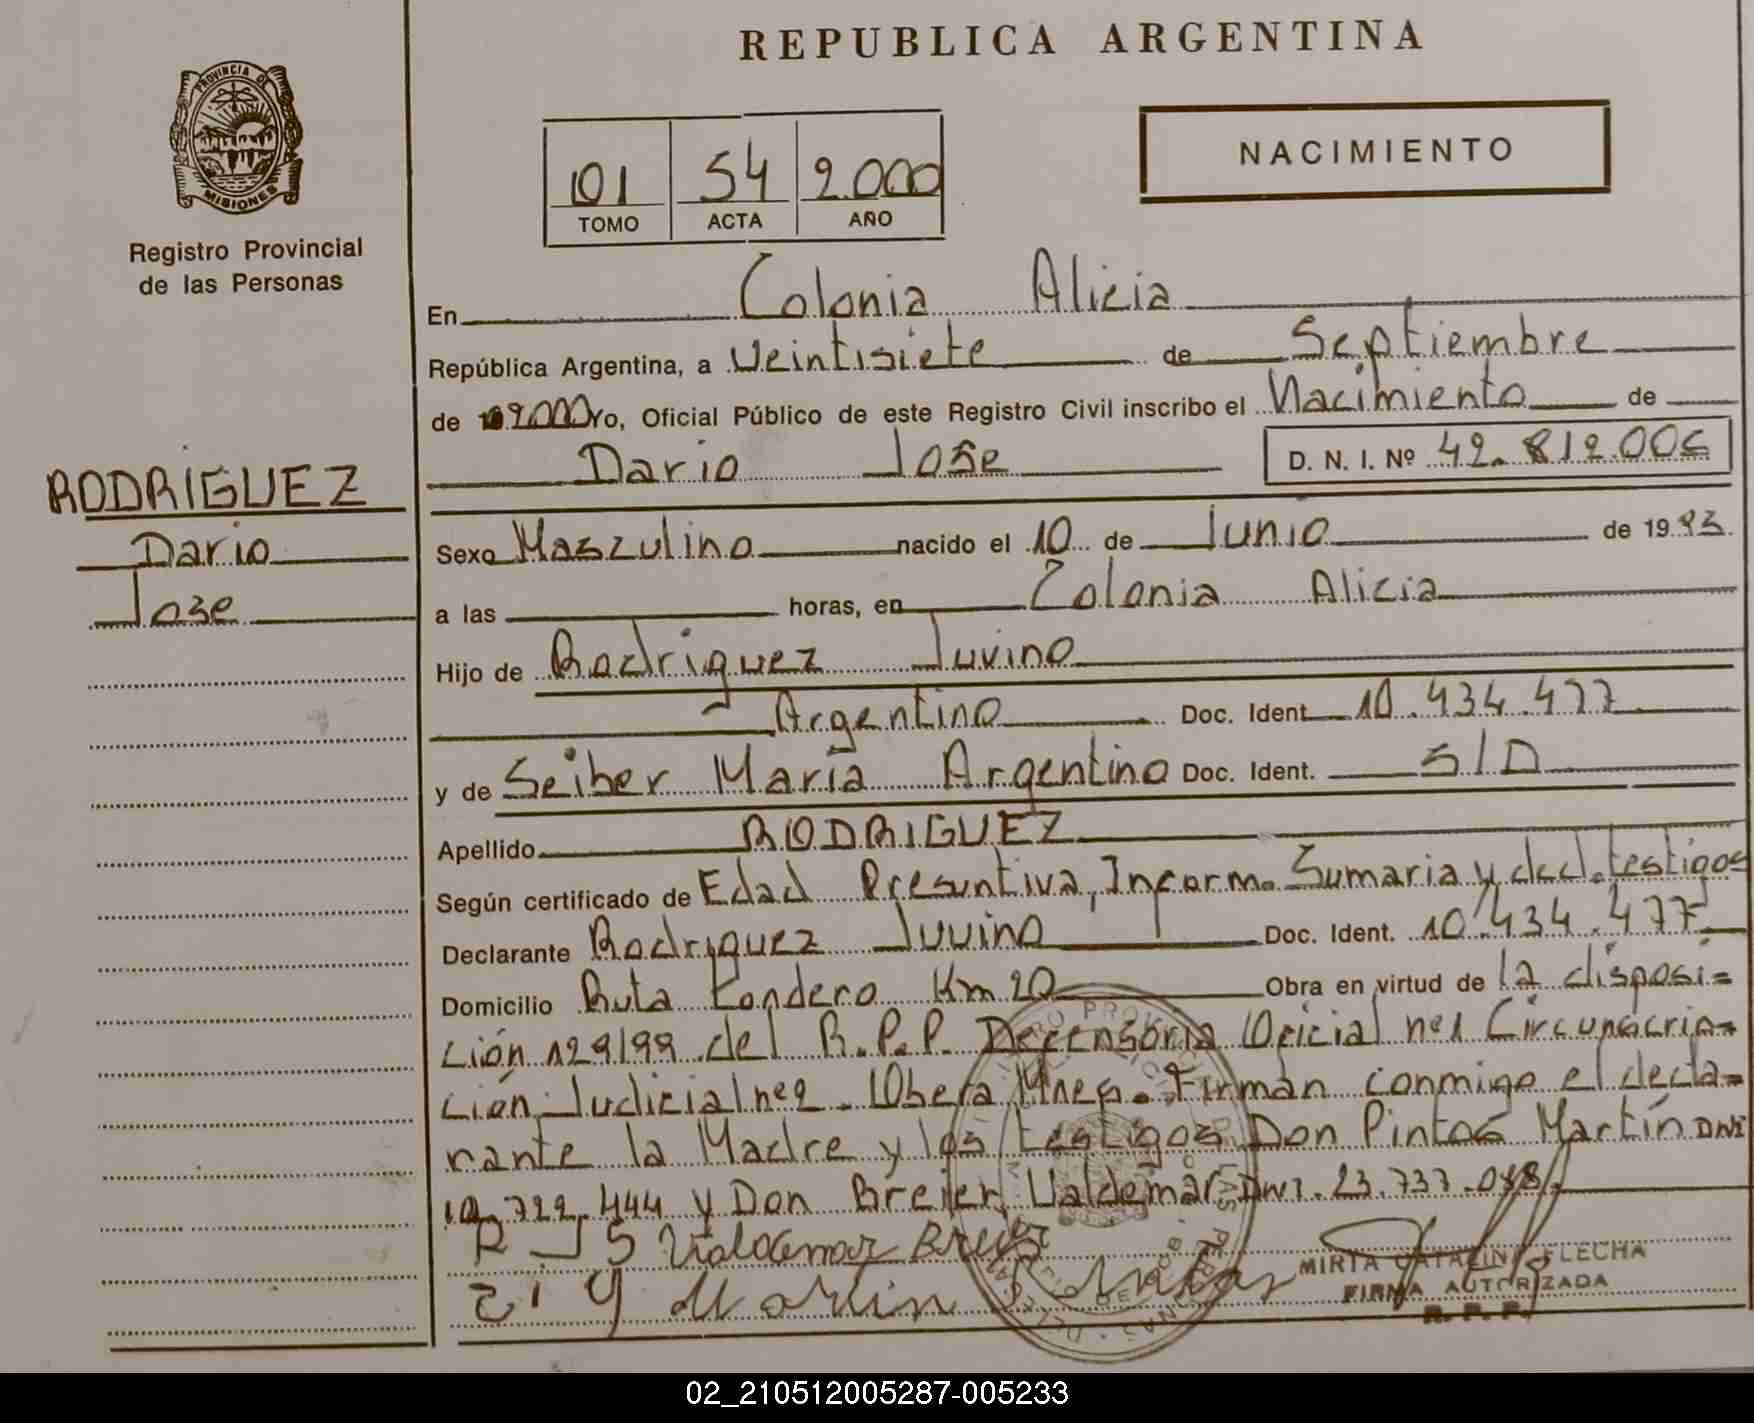 REPUBLICA ARGENTINA
PROVINCIA DE
MISIONES
Registro Provincial
de las Personas
NACIMIENTO
101 54 2.000
TOMO ACTA AÑO
En Colonia Alicia
República Argentina, a Veintisiete de Septiembre
de 2.000 Yo, Oficial Público de este Registro Civil inscribo el Nacimiento de
Dario José D. N. I. Nº 42.812.006
RODRIGUEZ
Dario
Jose
Sexo Maszulino nacido el 10 de Junio de 1993.
a las horas, en Colonia Alicia
Hijo de Rodriguez Juvino
Argentino Doc. Ident. 10.434.477
y de Seiber María Argentino Doc. Ident. S/D
Apellido RODRIGUEZ
Según certificado de Edad Presuntiva, Inform. Sumaria y decl. testigos
Declarante Rodriguez Juvino Doc. Ident. 10.434.477
Domicilio Ruta Km 20 Obra en virtud de la disposi-
ción 129/99 del R.P.P. Defensoria Oficial Circunscrip-
ción Judicial Obera Mnes. Firman conmigo el decla-
rante la Madre y los testigos Don Pintos Martín DNI
722.444 y Don Breier Valdemar DNI. 23.737.
R J S Valdemar Breier
Martin
MIRTA CATALINA FLECHA
FIRMA AUTORIZADA
R. P. P.
02_210512005287-005233